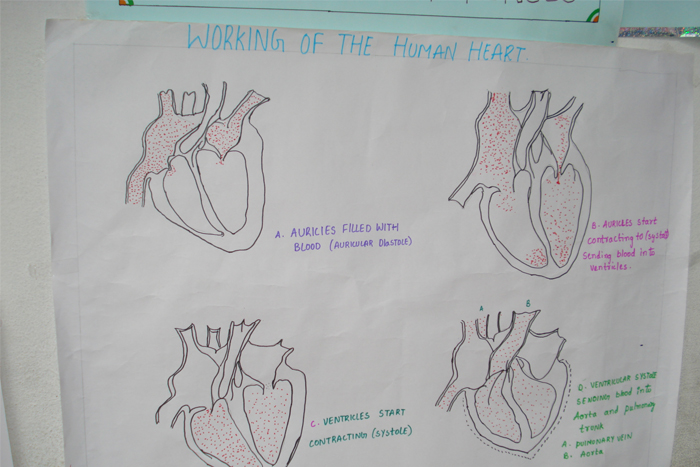 WORKING OF THE HUMAN HEART.
A. AURICIES FILLED WITH
BLOOD (AURICULAR DIASTOLE)
B. AURICLES start
contracting to (systole
sending blood into
ventricles.
C. VENTRICLES START
CONTRACTING (systole)
A
B
D. VENTRICULAR SYSTOLE
SENDING blood into
Aorta and pulmonary
trunk
A. PULMONARY VEIN
B. Aorta